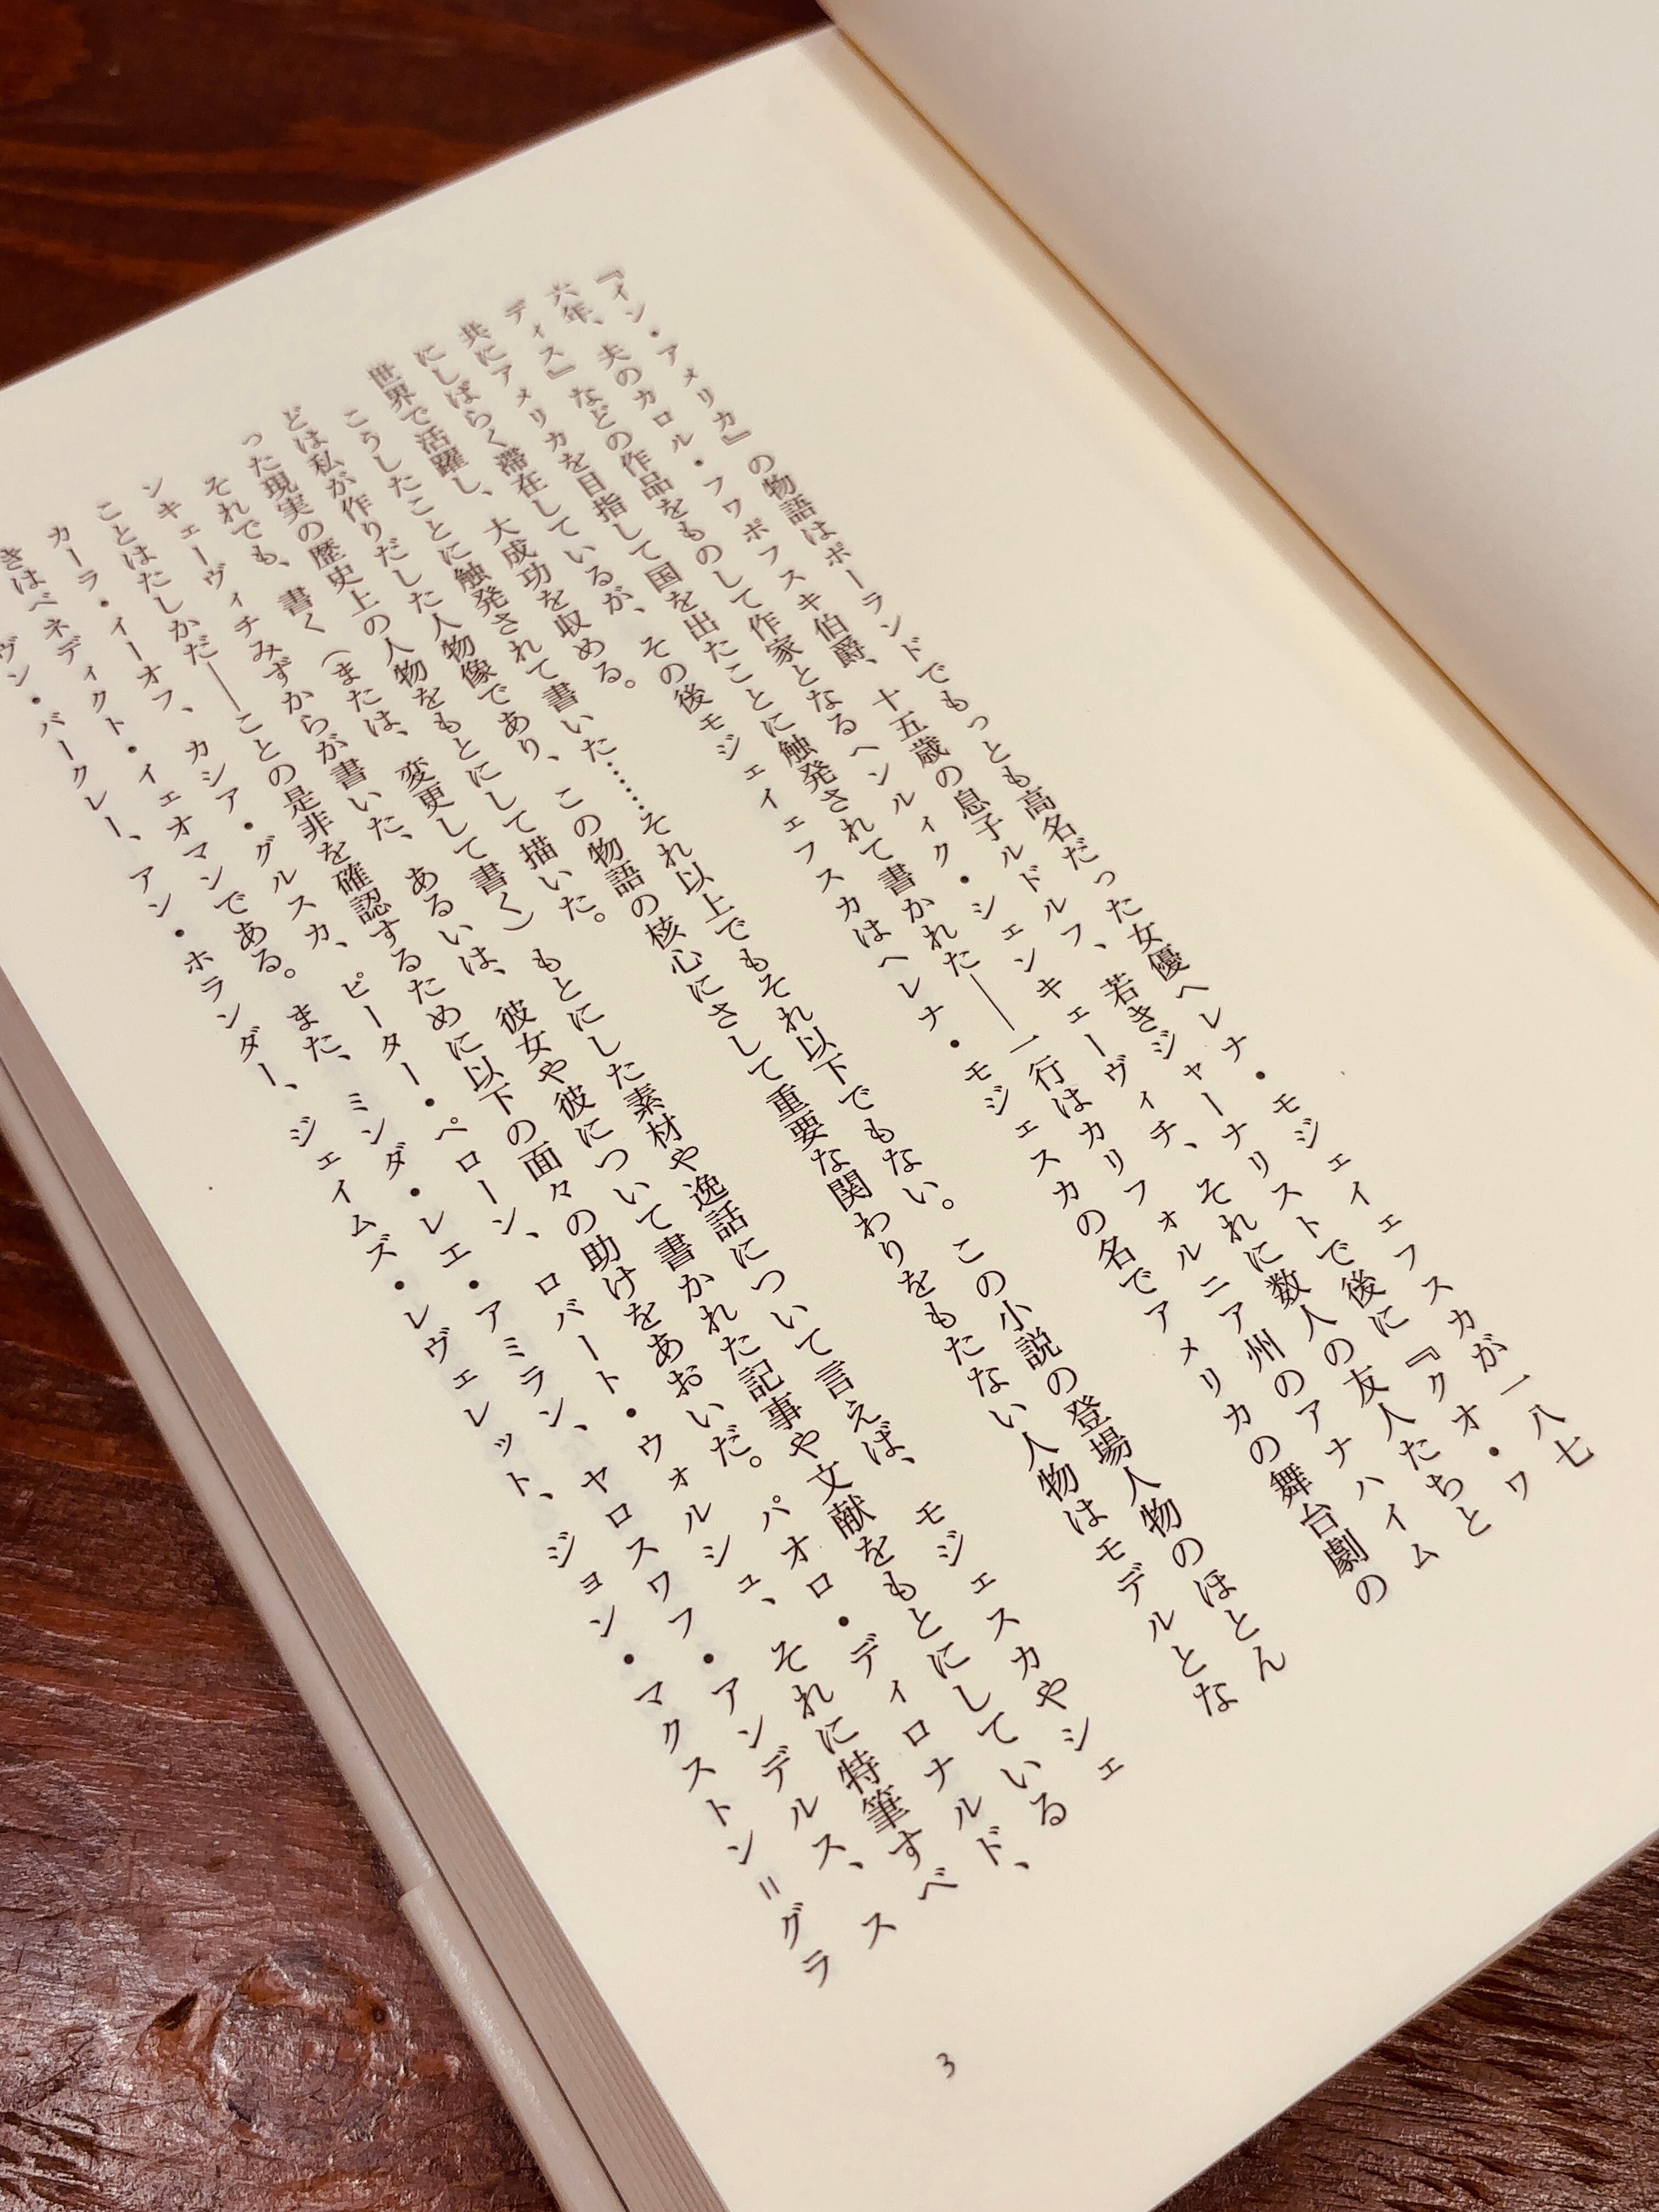 『イン・アメリカ』の物語はポーランドでもっとも高名だった女優ヘレナ・モジェイェフスカが一八七
六年、夫のカロル・フワポフスキ伯爵、十五歳の息子ルドルフ、若きジャーナリストで後に『クオ・ワ
ディス』などの作品をものして作家となるヘンルィク・シェンキェーヴィチ、それに数人の友人たちと
共にアメリカを目指して国を出たことに触発されて書かれた――一行はカリフォルニア州のアナハイム
にしばらく滞在しているが、その後モジェイェフスカはヘレナ・モジェスカの名でアメリカの舞台劇の
世界で活躍し、大成功を収める。
こうしたことに触発されて書いた……それ以上でもそれ以下でもない。この小説の登場人物のほとん
どは私が作りだした人物像であり、この物語の核心にさして重要な関わりをもたない人物はモデルとな
った現実の歴史上の人物をもとにして描いた。
それでも、書く（または、変更して書く）もとにした素材や逸話について言えば、モジェスカやシェ
ンキェーヴィチみずからが書いた、あるいは、彼女や彼について書かれた記事や文献をもとにしている
ことはたしかだ――ことの是非を確認するために以下の面々の助けをあおいだ。パオロ・ディロナルド、
カーラ・イーオフ、カシア・グルスカ、ピーター・ペローン、ロバート・ウォルシュ、それに特筆すべ
きはベネディクト・イェオマンである。また、ミンダ・レエ・アミラン、ヤロスワフ・アンデルス、ス
ヴン・バークレー、アン・ホランダー、ジェイムズ・レヴェレット、ジョン・マクストン＝グラ
3